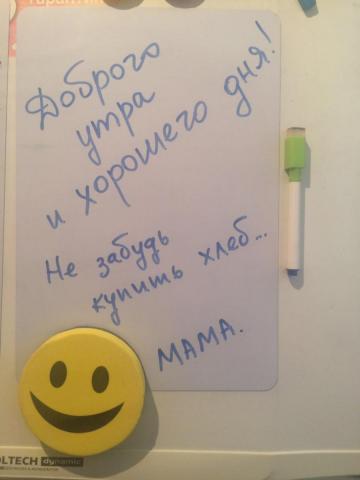 Доброго
утра
и хорошего дня!
Не забудь
купить хлеб...
МАМА.
OLTECH dynamic